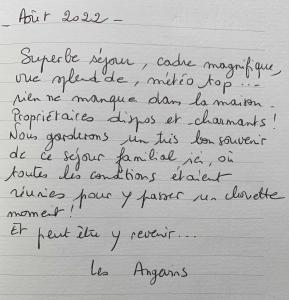 _ Août 2022 _
Superbe séjour, cadre magnifique,
vue splendide, météo top...
rien ne manque dans la maison.
Propriétaires dispos et charmants !
Nous garderons un très bon souvenir
de ce séjour familial ici, où
toutes les conditions étaient
réunies pour y passer un chouette
moment !
Et peut être y revenir...
Les